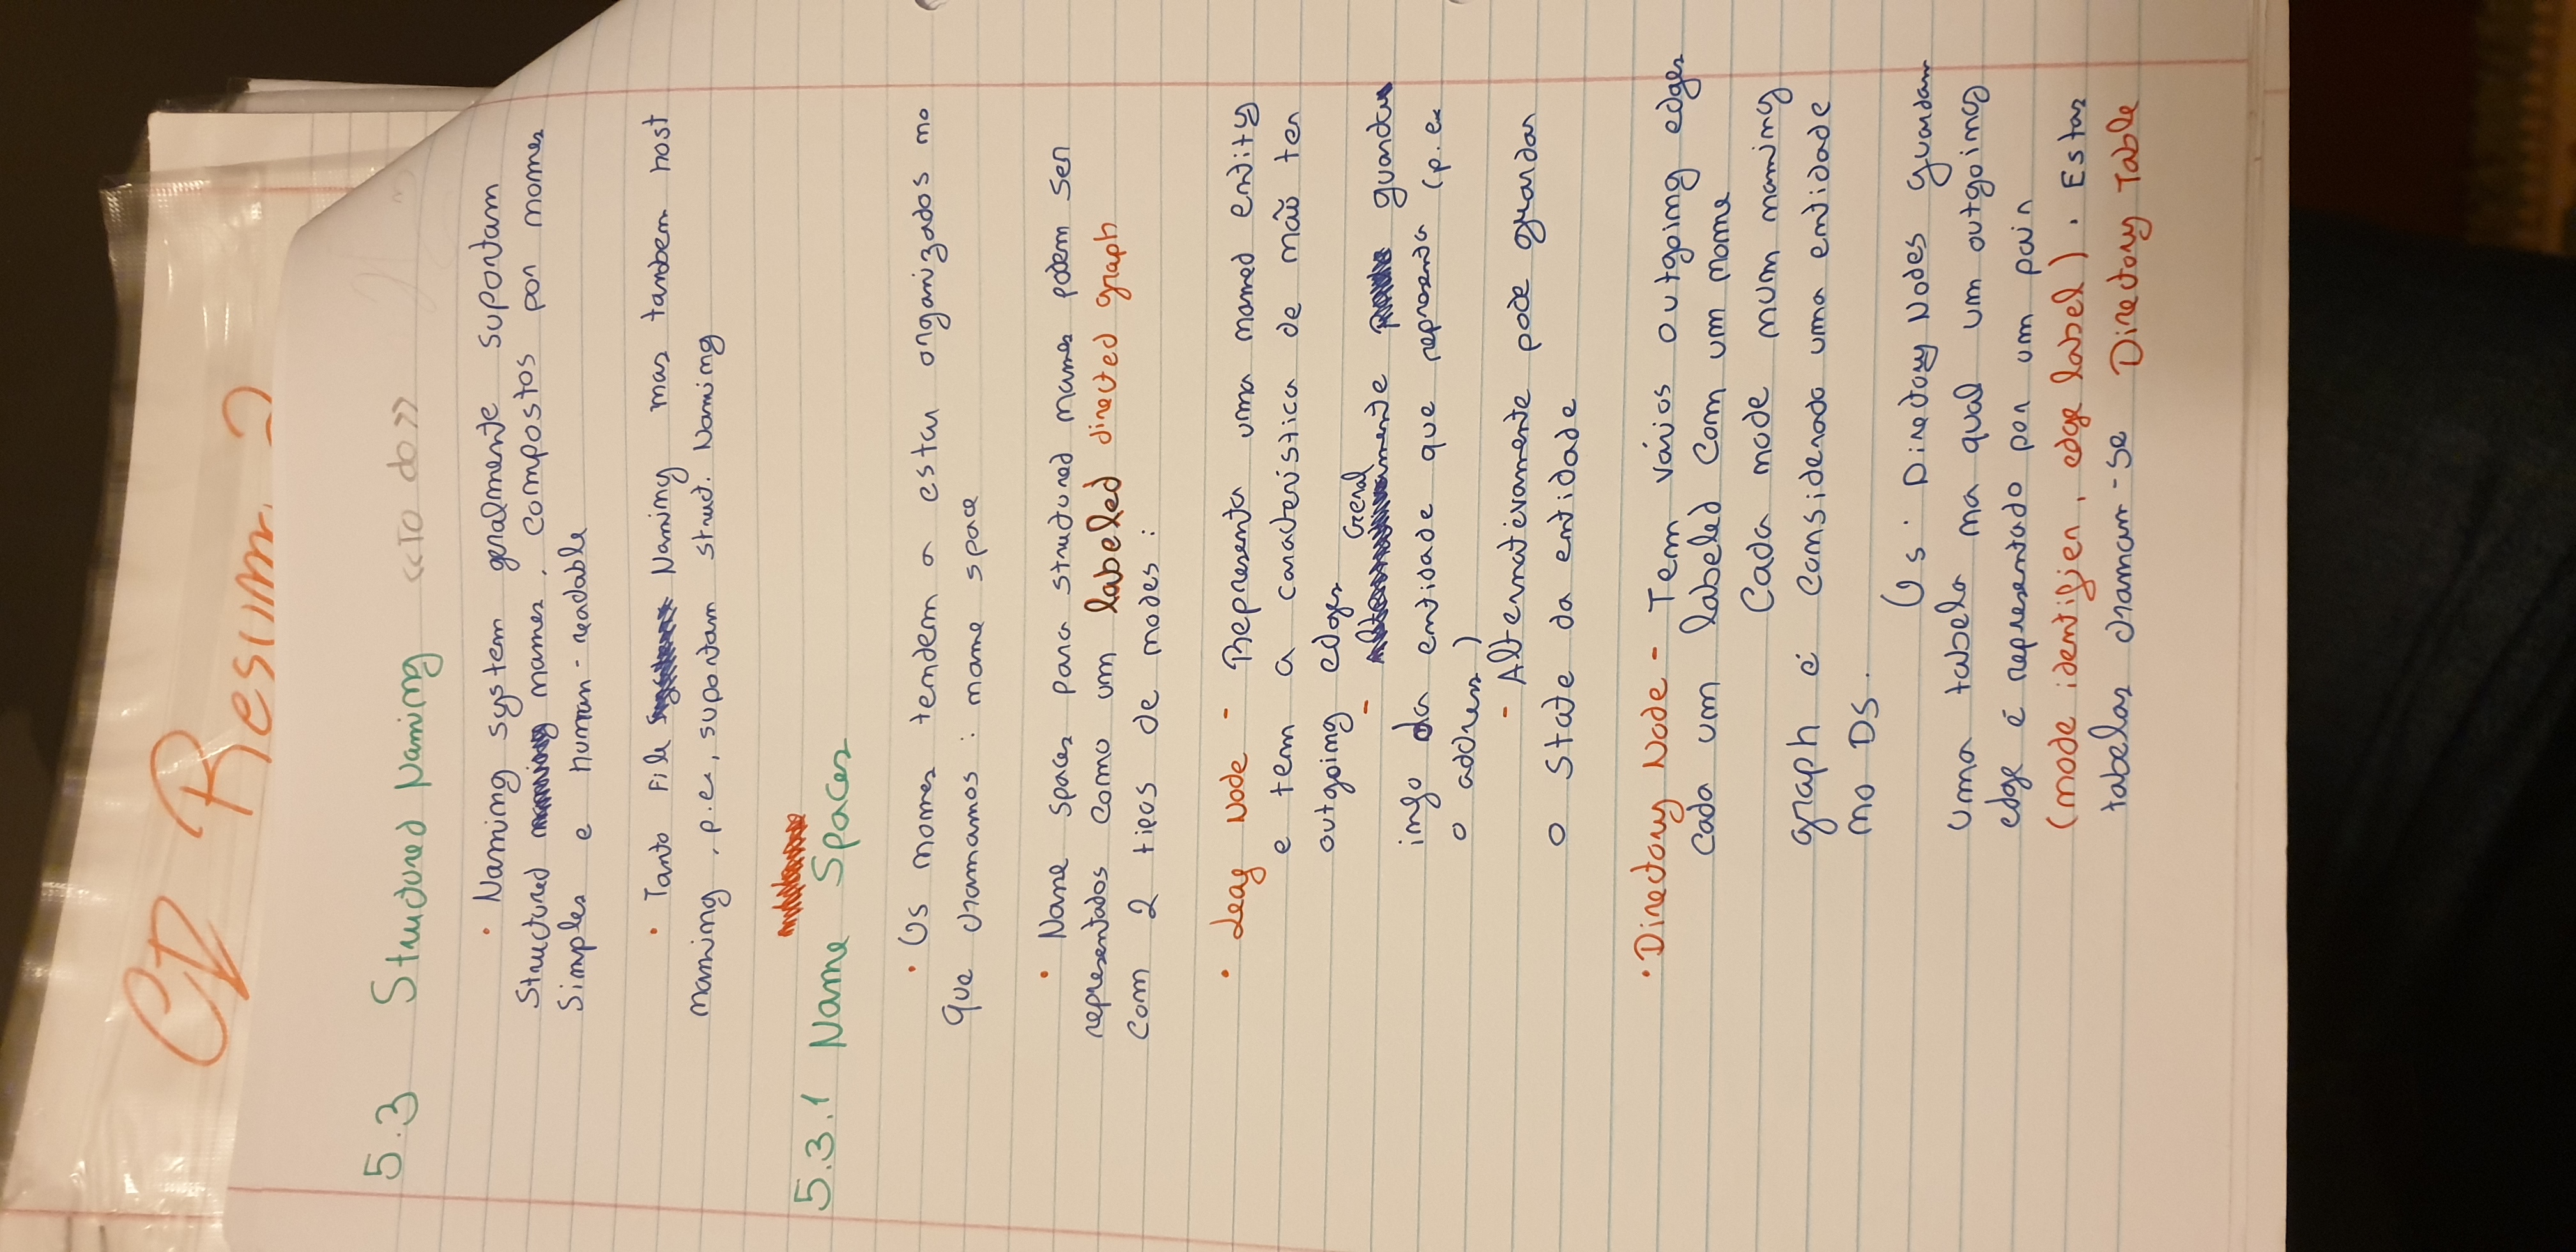 CD Resum. 2
5.3 Structured Naming <<To do>>
• Naming system geralmente suportam
Structured names, compostos por nomes
simples e human-readable
• Tanto File Naming mas tambem host
naming, p.ex, suportam struct. Naming
5.3.1 Name Spaces
• Os nomes tendem a estar organizados no
que chamamos: name space
• Name spaces para structured names podem ser
representados como um labeled directed graph
com 2 tipos de nodes:
• Leaf Node - Representa uma named entity
e tem a caracteristica de não ter
outgoing edges
- Geralmente guarda
info da entidade que representa (p.ex
o address)
- Alternativamente pode guardar
o state da entidade
• Directory Node - Tem vários outgoing edges
cada um labeled com um nome
Cada node num naming
graph é considerado uma entidade
no DS.
Os Directory Nodes guardam
uma tabela na qual um outgoing
edge é representado por um pair
(node identifier, edge label). Estas
tabelas chamam-se Directory Table